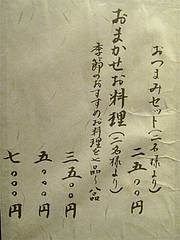 おつまみセット(二名様より)
二五〇〇円
おまかせお料理(二名様より)
季節のおすすめお料理を七品~八品
三五〇〇円
五〇〇〇円
七〇〇〇円